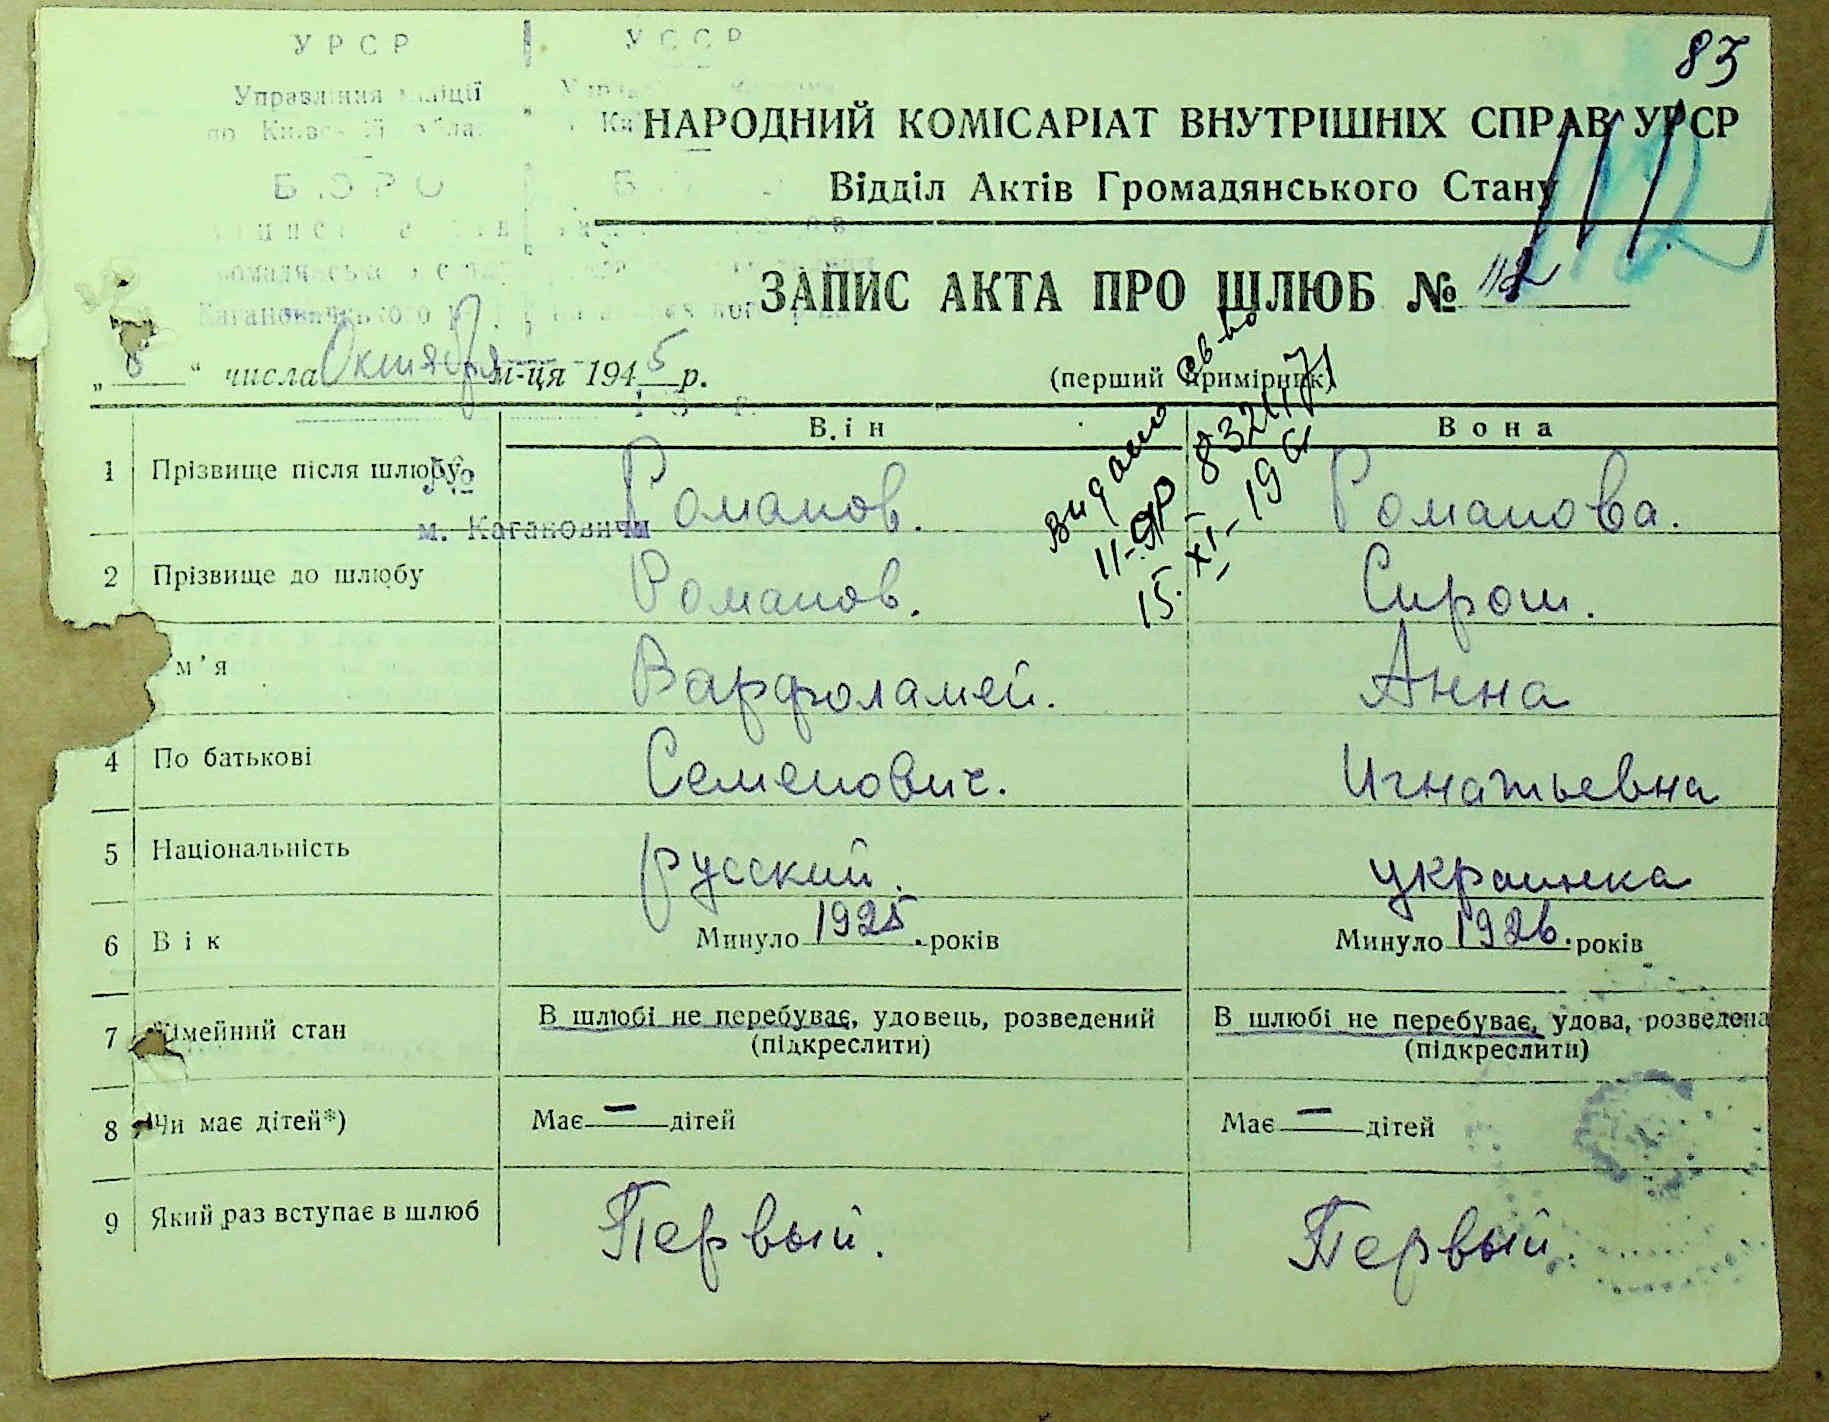 83
УРСР УССР
Управління міліції
по Київській
БЮРО
Кагановичського
НАРОДНИЙ КОМІСАРІАТ ВНУТРІШНІХ СПРАВ УРСР
Відділ Актів Громадянського Стану
112
ЗАПИС АКТА ПРО ШЛЮБ № 112
„8“ числа Октября м-ця 1945 р. (перший примірник)
Видано св-во
11-ЯР
15.XI-196
Він Вона
1 Прізвище після шлюбу Романов. Романова.
м. Кагановичи
2 Прізвище до шлюбу Романов. Сирош.
м'я Варфоламей. Анна
4 По батькові Семенович. Игнатьевна
5 Національність русский. украинка
6 Вік Минуло 1925. років Минуло 1926. років
7 імейний стан В шлюбі не перебуває, удовець, розведений В шлюбі не перебуває, удова, розведена
(підкреслити) (підкреслити)
8 Чи має дітей*) Має — дітей Має — дітей
9 Який раз вступає в шлюб Первый. Первый.